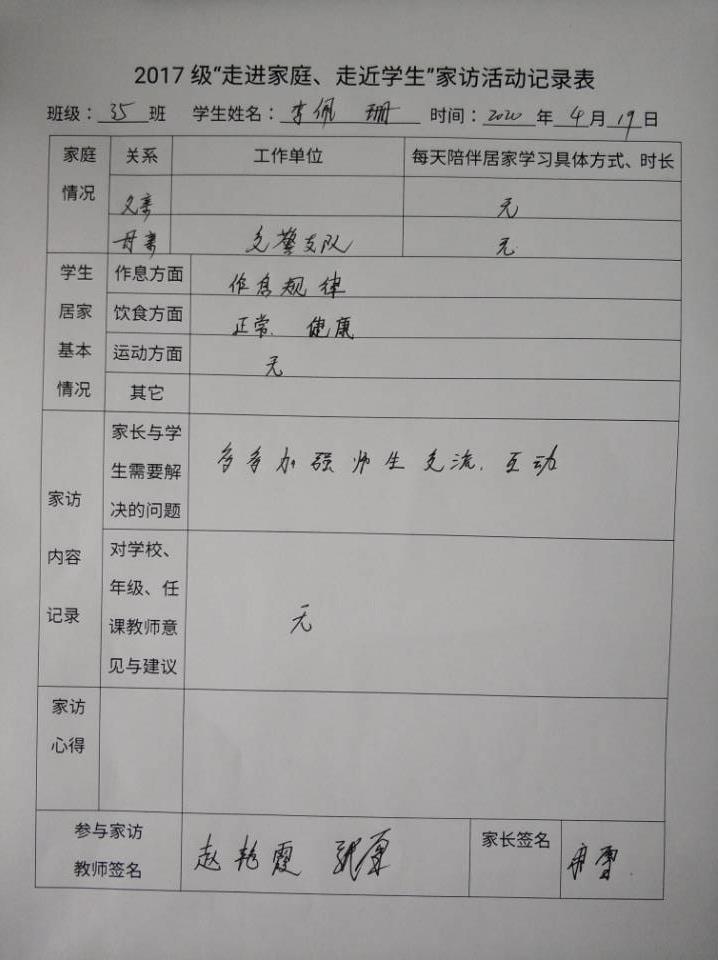 2017 级“走进家庭、走近学生”家访活动记录表
班级：35班 学生姓名：李佩珊 时间：2020年4月19日
家庭情况 关系 工作单位 每天陪伴居家学习具体方式、时长
父亲 无
母亲 交警支队 无
学生居家基本情况 作息方面 作息规律
饮食方面 正常、健康
运动方面 无
其它
家访内容记录 家长与学生需要解决的问题 多多加强师生交流、互动
对学校、年级、任课教师意见与建议 无
家访心得
参与家访教师签名 赵艳霞 家长签名